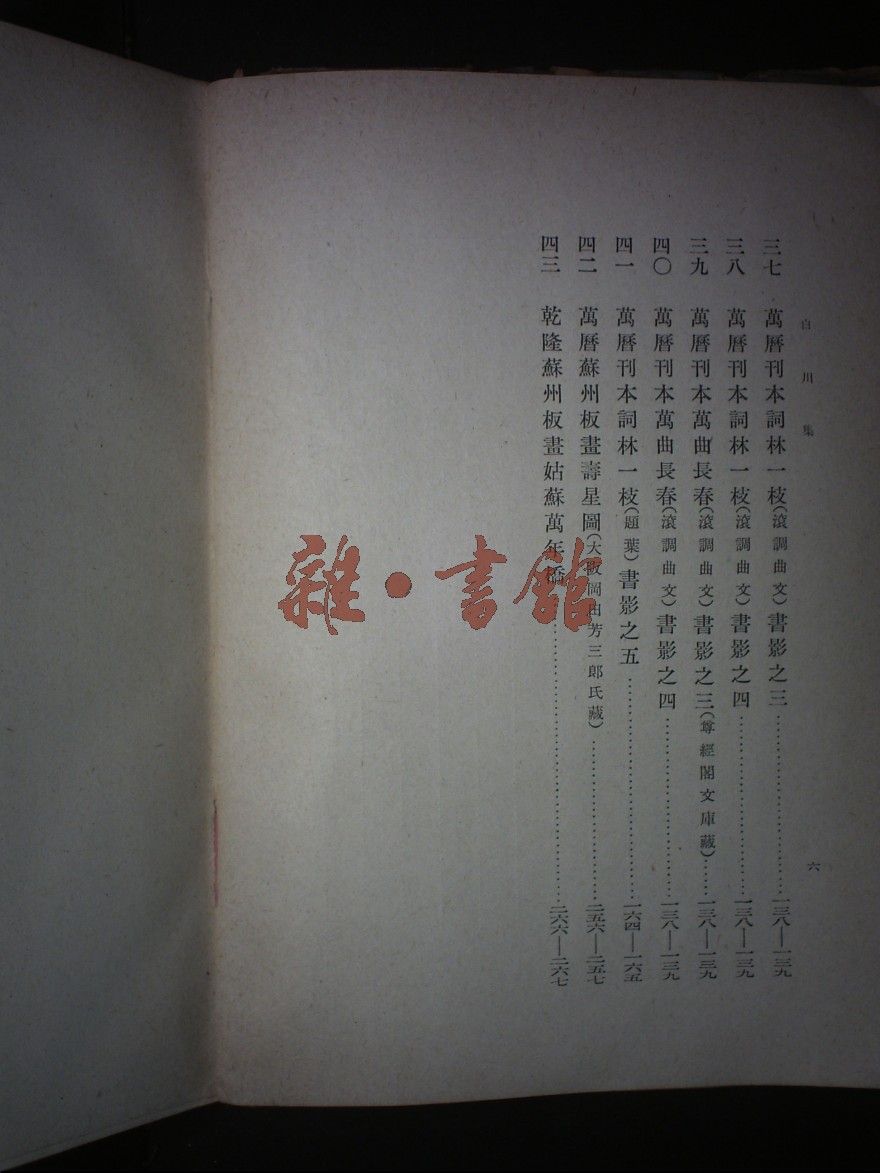 白川集
六
三七 萬曆刊本詞林一枝(滾調曲文)書影之三……………………一三八—一三九
三八 萬曆刊本詞林一枝(滾調曲文)書影之四……………………一三八—一三九
三九 萬曆刊本萬曲長春(滾調曲文)書影之三(尊經閣文庫藏)……一三八—一三九
四〇 萬曆刊本萬曲長春(滾調曲文)書影之四……………………一三八—一三九
四一 萬曆刊本詞林一枝(題葉)書影之五…………………………一六四—一六五
四二 萬曆蘇州板畫壽星圖(大阪岡田芳三郎氏藏)………………二五六—二五七
四三 乾隆蘇州板畫姑蘇萬年橋………………………………二六六—二六七
雜·書館